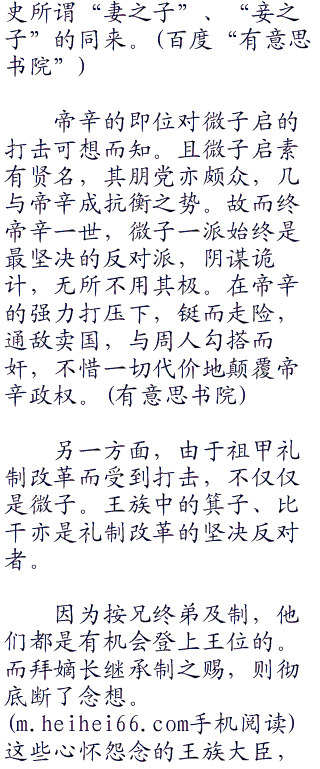 史所谓“妻之子”、“妾之
子”的同来。(百度“有意思
书院”)
帝辛的即位对微子启的
打击可想而知。且微子启素
有贤名，其朋党亦颇众，几
与帝辛成抗衡之势。故而终
帝辛一世，微子一派始终是
最坚决的反对派，阴谋诡
计，无所不用其极。在帝辛
的强力打压下，铤而走险，
通敌卖国，与周人勾搭而
奸，不惜一切代价地颠覆帝
辛政权。(有意思书院)
另一方面，由于祖甲礼
制改革而受到打击，不仅仅
是微子。王族中的箕子、比
干亦是礼制改革的坚决反对
者。
因为按兄终弟及制，他
们都是有机会登上王位的。
而拜嫡长继承制之赐，则彻
底断了念想。
(m.heihei66.com手机阅读)
这些心怀怨念的王族大臣，